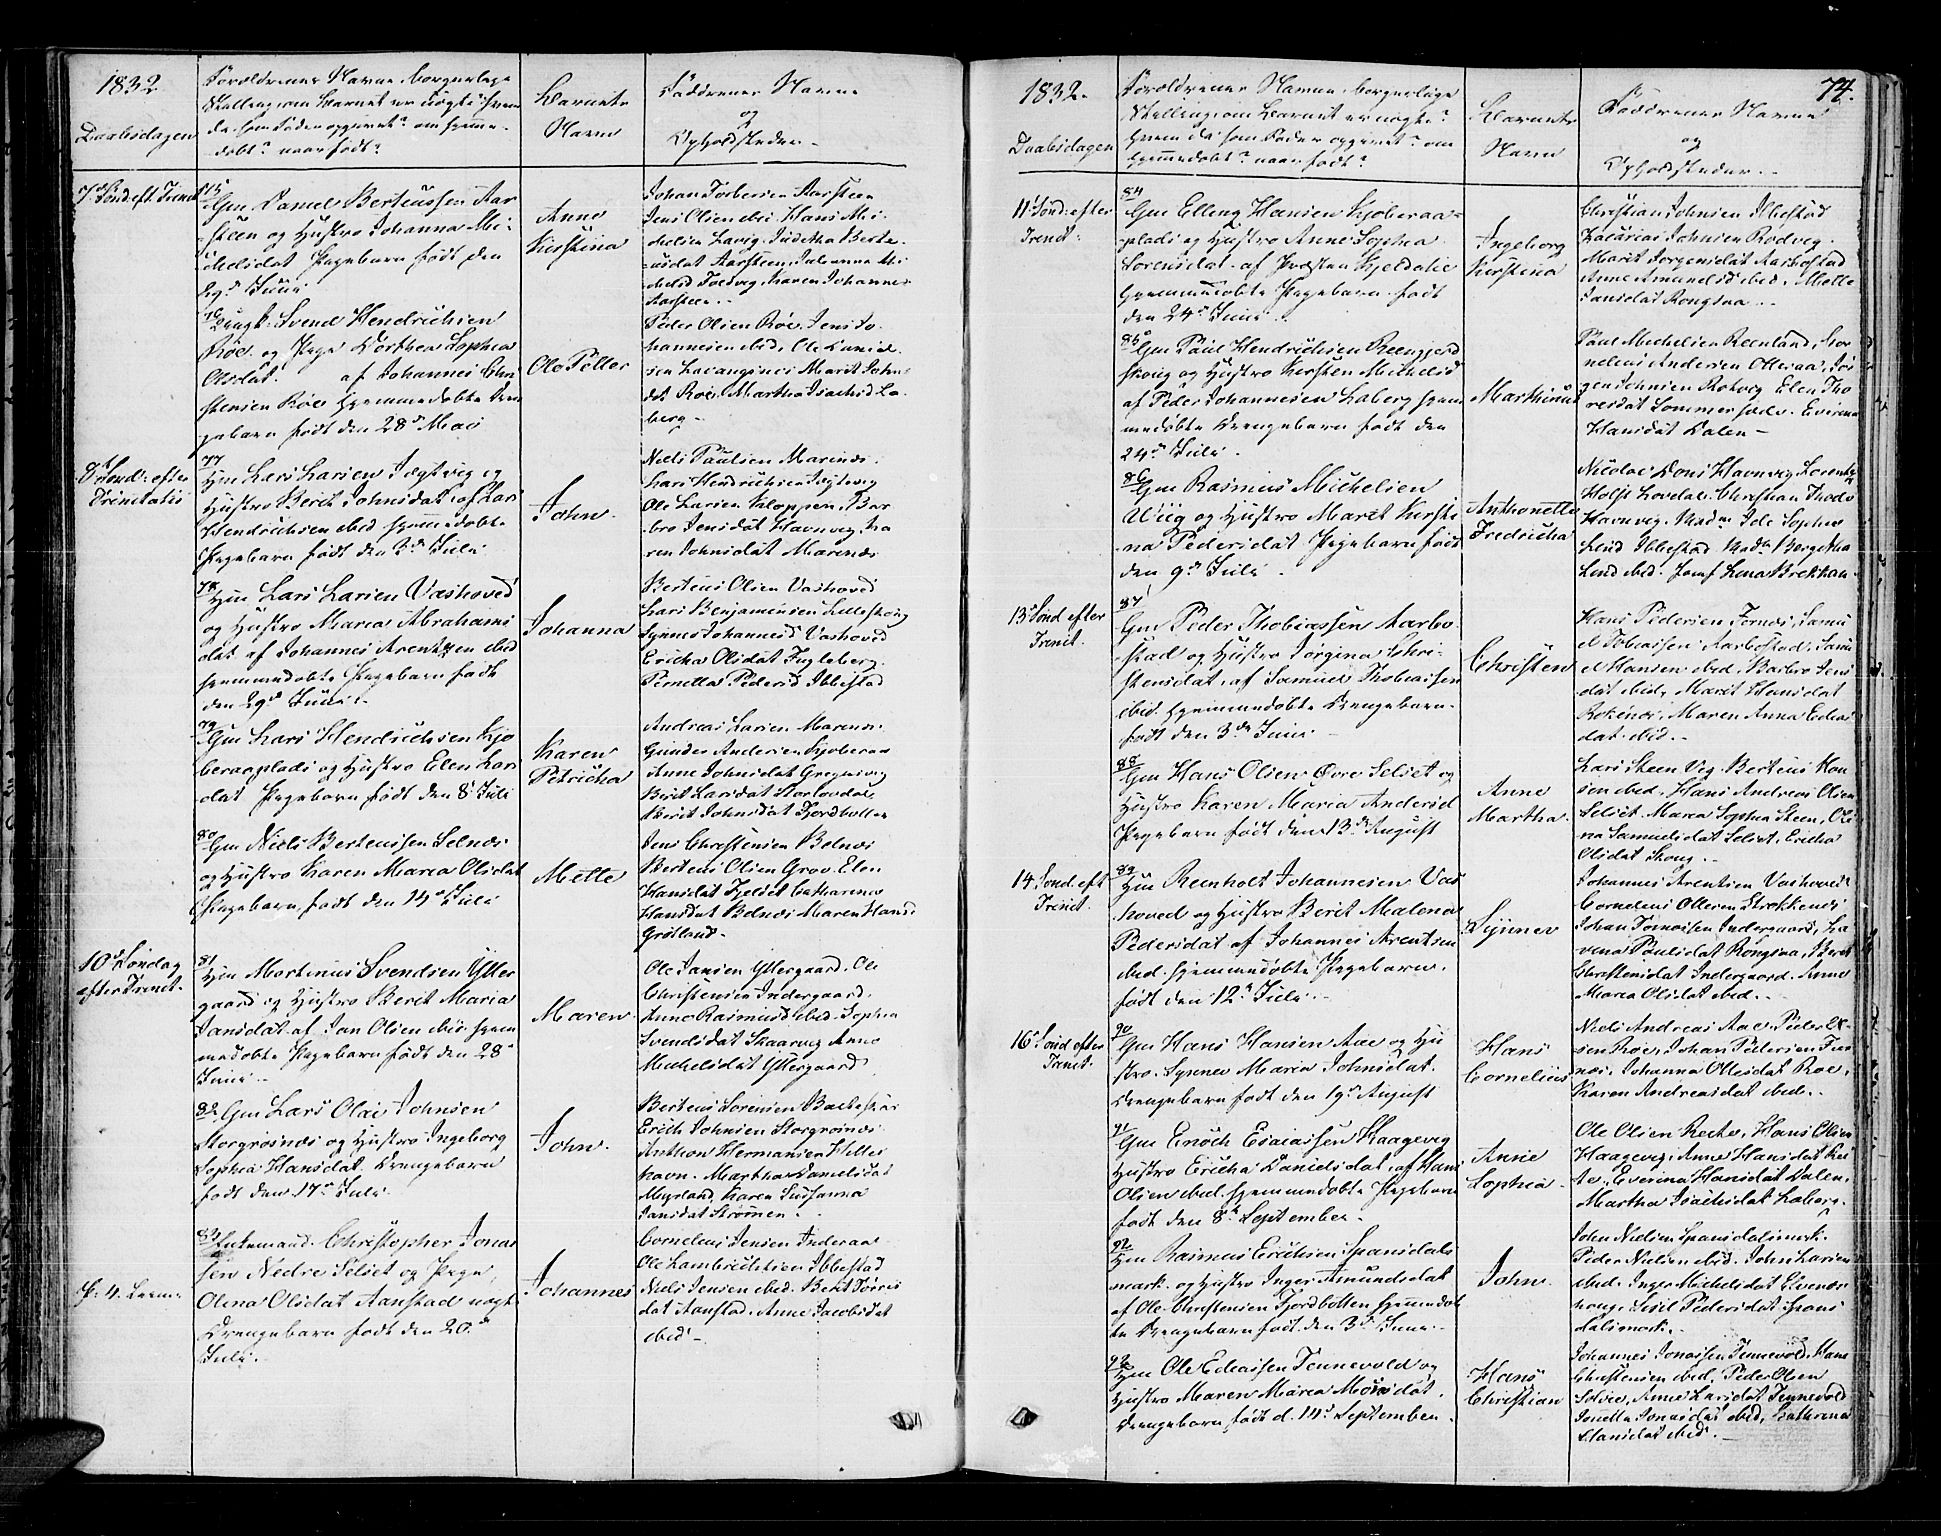 1832
Daabsdagen
Forældrenes Navne borgerlige
Stilling, om Barnet er uægte? hvem
da som Fader opgivet? om hjemme-
døbt? naar født?
Barnets
Navn
Faddrenes Navne
og
Opholdsteder.
7de Sønd: eft. Trinit
75
Gm Daniel Berteussen Aar
steen og Hustro Johanna Mi-
chelsdat Pigebarn født den
Juni
Anne
Kirstina
Johan Torbersen Aarsteen
Jens Olsen ibid Hans Mi-
chelsen Lavig. Juditha Berte-
usdat Aarsteen, Julianna Mi-
chelsd Foldvig, Karen Johannes
Aarsteen.
76
Ungk: Svend Hendrichsen
Röe og Pige Dorthea Sophia
Olsdat. af Johannes Chri
stensen Röe hjemmedøbte
gebarn født den 28de Mai
Ole Petter
Peder Olsen Röe, Jens Jo-
hannesen ibid, Ole Daniel-
sen Lavangsnes Marit Johns
dt Röe, Martha Isachsd La-
berg.
8de Sönd: efter
Trinitatis
77
Gm Lars Larsen Jægtvig og
Hustro Berit Johnsdat af Lars
Hendrichsen ibid hjemmedøbte
Pigebarn født den 3de Juli
John.
Niels Paulsen Marenæs.
Lars Hendrichsen Jegtvig
Ole Larsen Kloppen, Bar
bro Jensdat Havnvig, Ka
ren Johnsdat Marenæs
78
Gm Lars Larsen Vashoved
og Hustro Maria Abrahams
dat af Johannes Arentsen ibid
hjemmedøbte Pigebarn født
den 29de Juni.
Johanna
Berteus Olsen Vashoved
Lars Benjaminsen Lilleskog
Synnev Johannesd Vashoved
Ericha Olsdat Fugleberg.
Pernella Pedersd Ibbestad
79
Gm Lars Hendrichsen Kjo
beraaplads og Hustro Elen Lars
dat Pigebarn født den 8de Juli
Karen
Petricha
Andreas Larsen Marenæs.
Gunder Andersen Kjoberaa
Anne Johnsdat Gregusvig
Berit Larsdat Storlovdal
Berit Johnsdat Fjordbotten
80
Gm Niels Berteussen Selnæs
og Hustro Karen Maria Olsdat
Pigebarn født den 14de Juli
Mette
Jens Christensen Belnæs
Berteus Olsen Grov. Elen
Hansdat Fjelset Catharina
Hansdat Belnæs Maren Hansd
Grötland.
10de Söndag
efter Trinit.
81
Gm Martinus Svendsen Ytter
gaard og Hustro Berit Maria
Jansdat. af Jan Olsen ibid. hjem
medøbte Pigebarn født den 28de
Juni.
Maren
Ole Jansen Yttergaard. Ole
Christensen Indergaard,
Anne Rasmusd ibid. Sophia
Svendsdat Skaarvig Anne
Michelsdat Yttergaard
82
Gm Lars Olai Johnsen
Storgrøsnæs og Hustro Ingeborg
Sophia Hansdat. Drengebarn
født den 17de Juli
John.
Berteus Sorensen
Erich Johnsen Storgrøsnæs.
Anthon Hermansen Hille
havn. Martha Danielsdat
Myrland, Karen Susanna
Jansdat Strømmen.
83
Enkemand Christopher Jonas
sen Nedre Selset og Pige,
Olina Olsdat Aanstad uægte
Drengebarn født den 20de
Juli.
Johannes
Cornelius Jensen Inderaa
Ole Lambrechtsen Ibbestad
Niels Jensen ibid. Berit Torris
dat Aanstad. Anne Jacobsdat
ibid
1832.
Daabsdagen
Forældrenes Navne, borgerlige
Stilling, om Barnet er uægte?
hvem da som Fader opgivet? om
hjemmedøbt? naar født?
Barnets
Navn
Faddrenes Navne
og
Opholdsteder.
74.
11te Sönd: efter
Trinit:
84
Gm Elling Hansen Kjoberaa-
plads og Hustro Anne Sophia
Sorensdat. af Præsten Kjeldalie
hjemmedøbte Pigebarn født
den 24de Juni.
Ingeborg
Kirstina
Christian Johnsen Ibbestad
Zacarias Johnsen Rodvig.
Marit Jorgensdat Aarbostad
Anne Amundsd ibid, Mette
Jansdat Rongsaa.
85
Gm Paul Hendrichsen Reengjerd
skoug og Hustro Kirsten Michelsd
af Peder Johannesen Laberg hjem
medøbte Drengebarn født den
24de Juli.
Marthinus
Paul Michelsen Reenland, Cor
nelius Andersen Ollesaa, Jør
gen Johnsen Rotvig Elen Tho
resdat Sommersæde. Everina
Hansdat Dalen
86
Gm Rasmus Michelsen
Wiig og Hustro Maret Kirsti
na Pedersdat Pigebarn født
den 9de Juli.
Anthonetta
Fredricha
Nicolai Dons Havnvig, Lorentz
Holst Lovedal. Christian Thode
Havnvig. Madm Ide Sophia
Lind Ibbestad Madm Bergetha
Lind ibid. Jomf Lena Brekkan
13de Sönd efter
Trinit.
87
Gm Peder Thobiassen Aarbo
stad og Hustro Jorgina Chri-
stensdat, af Samuel Thobiassen
ibid. hjemmedøbte Drengebarn.
født den 3de Juni.
Christen
Hans Pedersen Fornæs, Samu
el Tobiassen Aarbostad, Samu
el Hansen ibid, Barbro Jens
dat ibid, Marit Hansdat
Rokenes, Maren Anna Edias
dat. ibid.
88
Gm Hans Olsen Øvre Selset og
Hustro Karen Maria Andersd
Pigebarn født den 13de August
Anne
Martha.
Lars Steen Vig. Berteus Han
sen ibid, Hans Andreas Olsen
Selset. Maria Sophia Steen, Oli
na Samuelsdat Selset. Ericha
Olsdat Skoug.
14. Sönd. eft
Trinit.
89
Gm Reenholt Johannesen Vas
hoved og Hustro Berit Malena
Pedersdat af Johannes Arentsen
ibid. hjemmedøbte Pigebarn.
født den 12te Juli.
Synnev
Johannes Arentsen Vashoved
Cornelius Ollesen Strokkenæs
Johan Tornæsen Indergaard, La
vina Paulsdat Rongsaa, Berit
Christensdat Indergaard. Anne
Maria Olsdat ibid.
16de Sönd efter
Trinit.
90
Gm Hans Hansen Aae og Hu
stro. Synnev Maria Johnsdat.
Drengebarn født den 19de August
Hans
Cornelius
Niels Andreas Aae. Peder
sen Röe, Johan Pedersen For
næs, Johanna Ollesdat Roe,
Karen Andreasdat ibid.
91
Gm Enoch Esaiassen Haagevig
Hustro Ericha Danielsdat, af Hans
Olsen ibid. hjemmedøbte Pigebarn
født den 8de September.
Anne
Sophia.
Ole Olsen Reste, Hans Olsen
Haagevig. Anne Hansdat
Everina Hansdat Dalen,
Martha Isachsdat Laberg.
92
Gm Rasmus Erichsen Spansdals
mark. og Hustro Inger Amundsdat
af Ole Christensen Fjordbotten hjemmedøb
te Drengebarn født den 3de Juni.
John.
John Nielsen Spansdalsmark.
Peder Nielsen ibid. John Larsen
ibid. Inger Michelsdat Elvenes
houg. Sisil Pedersdat Spans
dalsmark.
93
Gm Ole Ediassen Tennevold og
Hustro Maren Maria Monsdat,
Drengebarn født d. 14de September.
Hans
Christian
Johannes Jonassen Tennevold, Hans
Christensen ibid, Peder Olsen
Solvev, Anne Larsdat Tennevold
Jonetta Jonasdat ibid, Cathrina
Hansdat ibid.